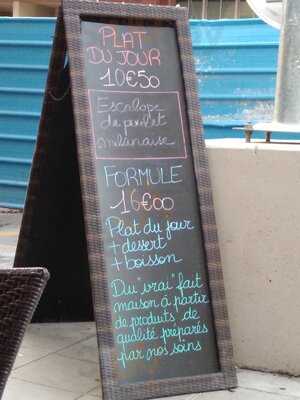 PLAT
DU JOUR
10€50
Escalope
de poulet
milanaise
FORMULE
16€00
Plat du jour
+ dessert
+ boisson
Du "vrai" fait
maison à partir
de produits de
qualité préparés
par nos soins